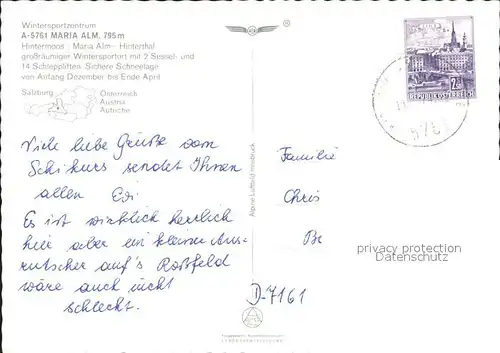 Wintersportzentrum
A-5761 MARIA ALM, 795 m
Hintermoos - Maria Alm - Hinterthal
großräumiger Wintersportort mit 2 Sessel- und
14 Schleppliften. Sichere Schneelage
von Anfang Dezember bis Ende April
Salzburg
Österreich
Austria
Autriche
Viele liebe Grüße vom
Schikurs sendet Ihnen
allen Edi
Es ist wirklich herrlich
hier aber ein kleiner Aus-
rutscher auf's Roßfeld
wäre auch nicht
schlecht.
Alpine Luftbild Innsbruck
REPUBLIK ÖSTERREICH
Familie
Chris
Be
D-7161
privacy protection
Datenschutz